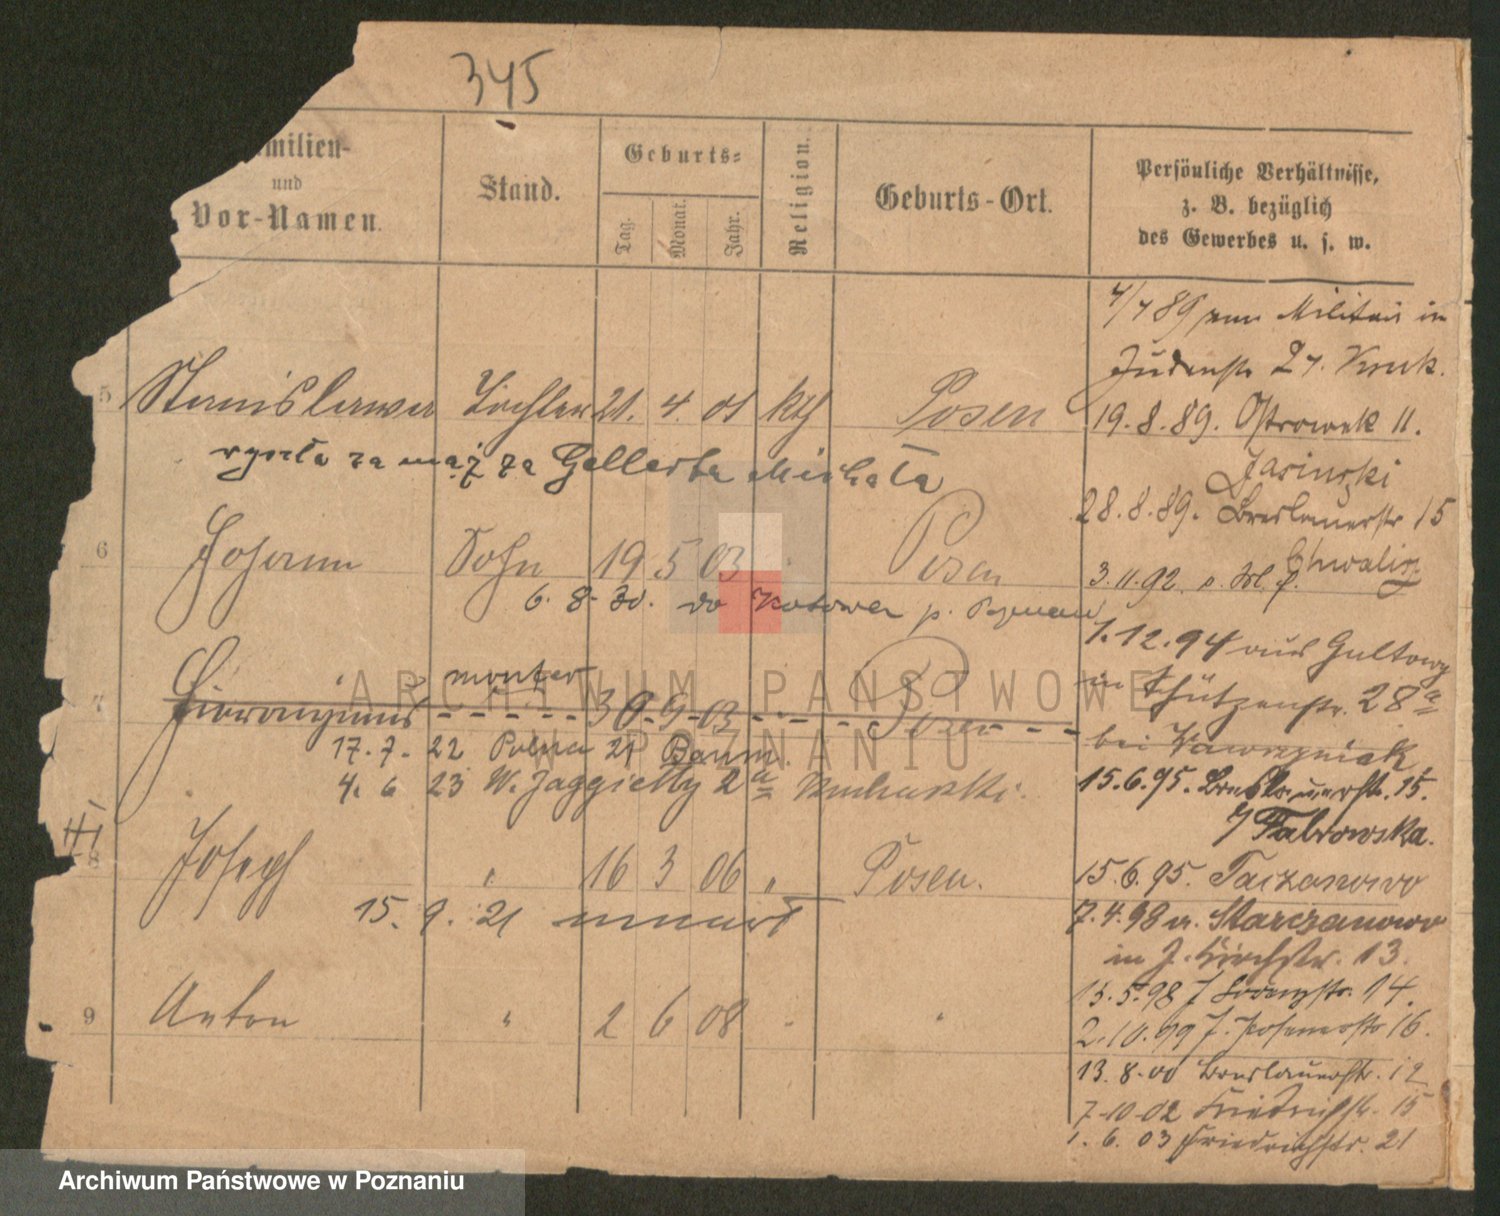 345
milien-
und
Vor-Namen.
Stand.
Geburts-
Tag.
Monat.
Jahr.
Religion.
Geburts-Ort.
Persönliche Verhältnisse,
z. B. bezüglich
des Gewerbes u. s. w.
4/7 89 zum Militair in
Judenstr 27. Kruk.
5 Stanislawa Tochter 21. 4. 01 kth Posen
19. 8. 89. Ostrowek 11.
Jasinski
za mąż za Gellerta Michała
28. 8. 89. Breslauerstr 15
Chwalisz
6 Johann Sohn 19 5 03 Posen
3. 11. 92.
6. 8. 30. do Kotowa p. Poznań
1. 12. 94 aus Gultowy
in Schützenstr. 28 a
monter
7 Hieronymus 30 9 03 Posen
bei Wawrzyniak
17. 7. 22 Polna 21 Baum.
4. 6 23 W. Jaggiełły 2 a
15. 6. 95. Breslauerstr. 15.
Fabrowska.
8 Joseph " 16 3 06 " Posen.
15. 6. 95. Taczanowo
15. 9. 21 umarł
7. 4. 98 a. Starczanowo
in J. Kirchstr. 13.
15. 5. 98 14.
9 Anton " 2 6 08 "
2. 10. 99 J. Posenerstr 16.
13. 8. 00 Breslauerstr. 12
7-10-02 Friedrichstr. 15
1. 6. 03 Friedrichstr. 21
ARCHIWUM PAŃSTWOWE
W POZNANIU
Archiwum Państwowe w Poznaniu